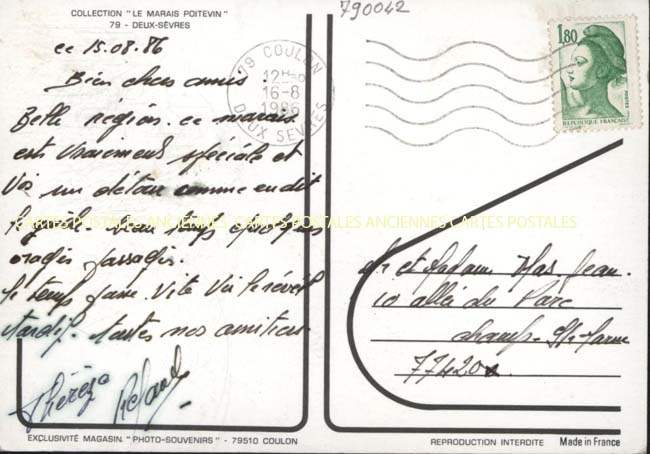 COLLECTION "LE MARAIS POITEVIN"
79 - DEUX-SÈVRES
790042
ce 15.08.86
Bien chers amis.
Belle région. ce marais
est vraiment spéciale et
un détour comme on dit
temps quelques
orages passagés.
le temps passe. Vite le réveil
tardif. toutes nos amitiés
Thérèze
79 COULON
12H
16-8
1986
DEUX SEVRES
1,80
POSTES
REPUBLIQUE FRANÇAISE
CARTES POSTALES ANCIENNES CARTES POSTALES ANCIENNES CARTES POSTALES
Mr et Madame Mas Jean.
10 allée du Parc
Champs. S/Marne
77420
EXCLUSIVITÉ MAGASIN "PHOTO-SOUVENIRS" - 79510 COULON
REPRODUCTION INTERDITE
Made in France